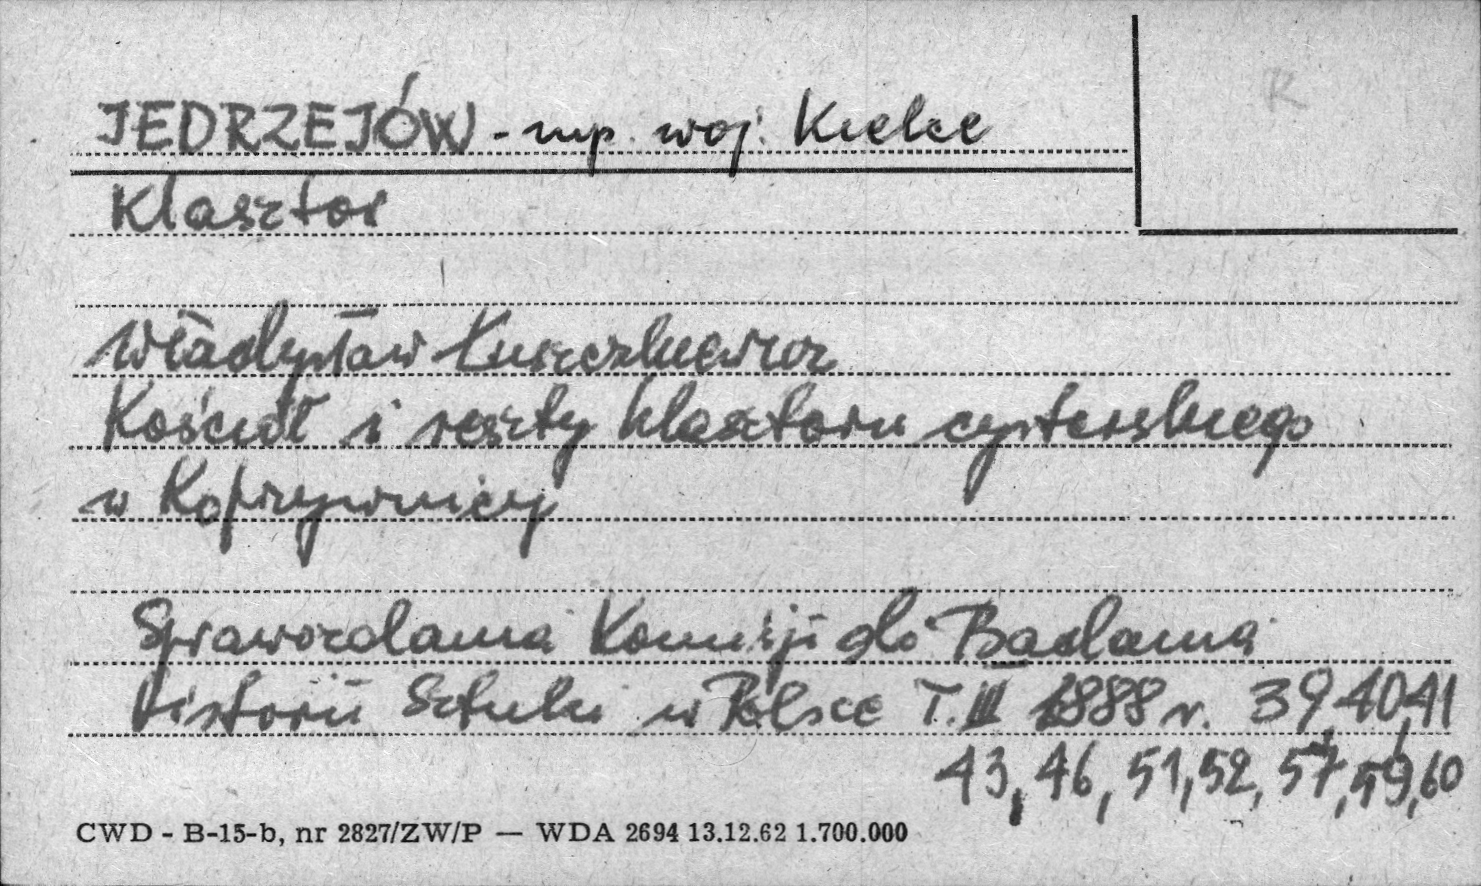 R
JEDRZEJÓW - mp. woj. Kielce
Klasztor
Władysław Łuszczkiewicz
Kościół i reszty klasztoru cysterskiego
w Koprzywnicy
Sprawozdania Komisji do Badania
Historii Sztuki w Polsce T. III 1888 r. 39, 40, 41
43, 46, 51, 52, 57, 59, 60
CWD - B-15-b, nr 2827/ZW/P — WDA 2694 13.12.62 1.700.000